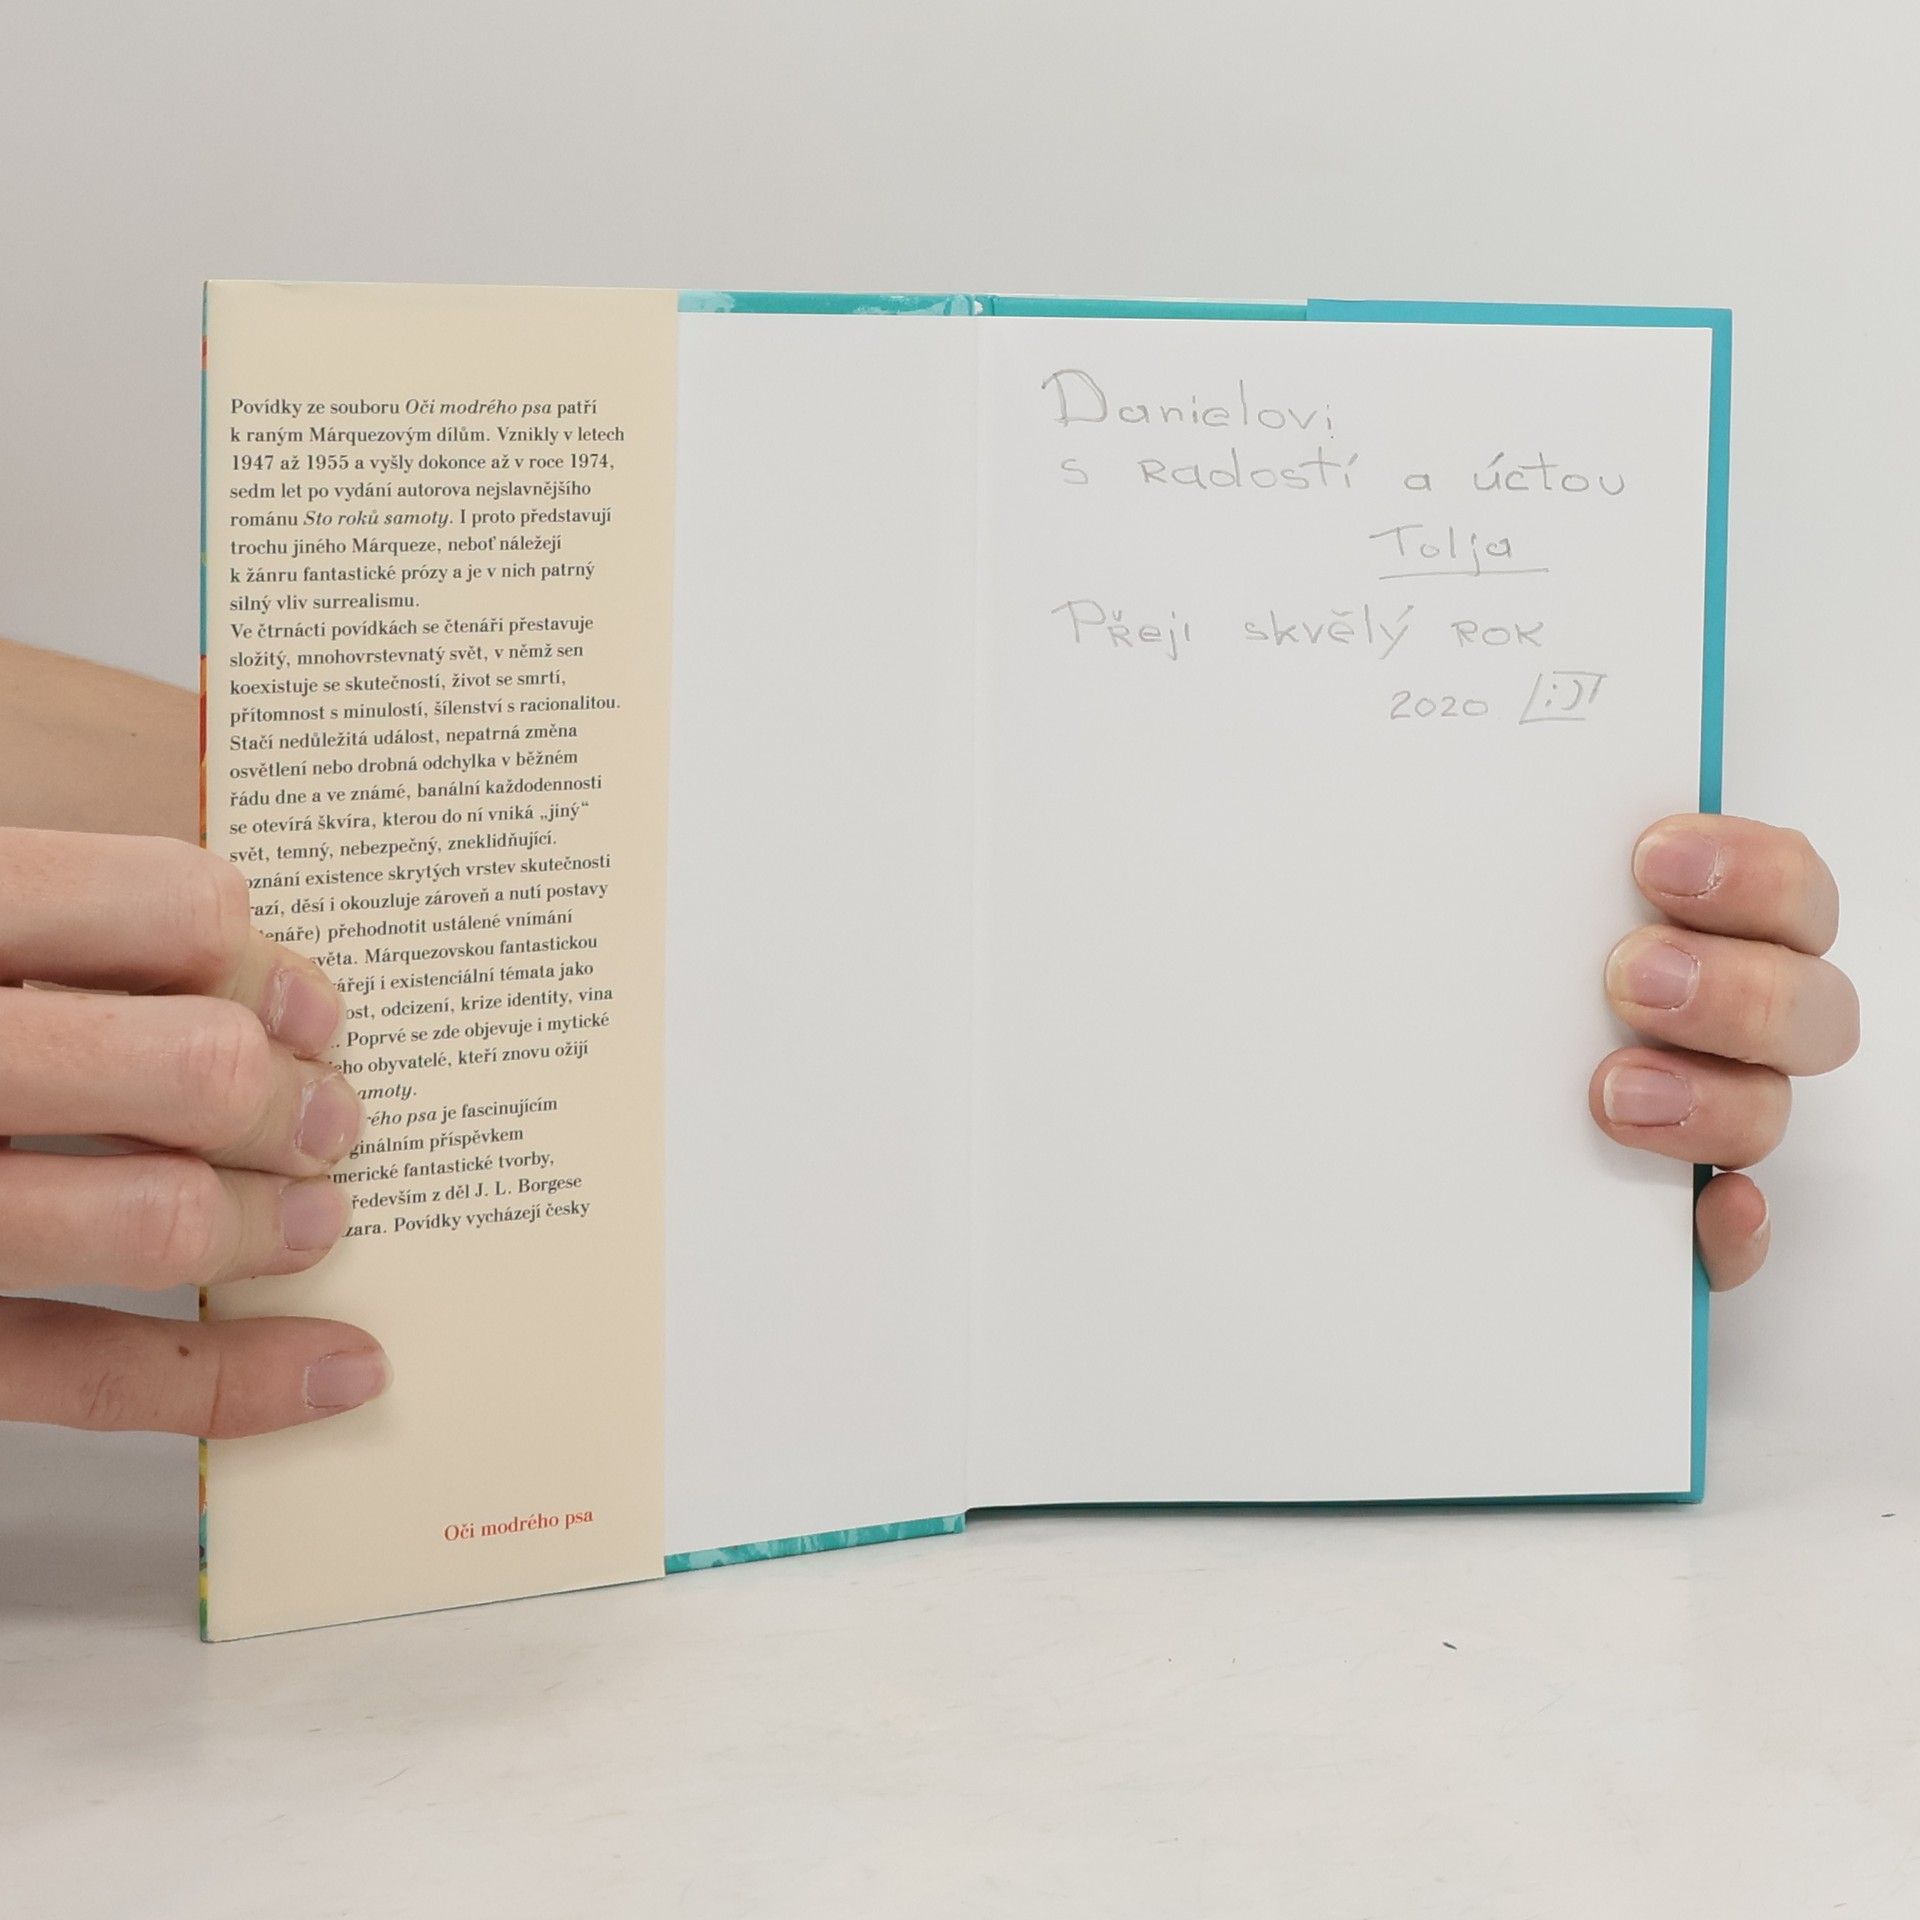 Povídky ze souboru Oči modrého psa patří
k raným Márquezovým dílům. Vznikly v letech
1947 až 1955 a vyšly dokonce až v roce 1974,
sedm let po vydání autorova nejslavnějšího
románu Sto roků samoty. I proto představují
trochu jiného Márqueze, neboť náležejí
k žánru fantastické prózy a je v nich patrný
silný vliv surrealismu.
Ve čtrnácti povídkách se čtenáři přestavuje
složitý, mnohovrstevnatý svět, v němž sen
koexistuje se skutečností, život se smrtí,
přítomnost s minulostí, šílenství s racionalitou.
Stačí nedůležitá událost, nepatrná změna
osvětlení nebo drobná odchylka v běžném
řádu dne a ve známé, banální každodennosti
se otevírá škvíra, kterou do ní vniká „jiný“
svět, temný, nebezpečný, zneklidňující.
oznání existence skrytých vrstev skutečnosti
razí, děsí i okouzluje zároveň a nutí postavy
tenáře) přehodnotit ustálené vnímání
světa. Márquezovskou fantastickou
ářejí i existenciální témata jako
ost, odcizení, krize identity, vina
. Poprvé se zde objevuje i mytické
eho obyvatelé, kteří znovu ožijí
amoty.
rého psa je fascinujícím
ginálním příspěvkem
merické fantastické tvorby,
ředevším z děl J. L. Borgese
zara. Povídky vycházejí česky
Oči modrého psa
Danielovi
s Radostí a úctou
Tolja
Přeji skvělý rok
2020 :)